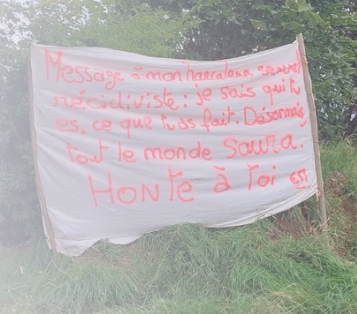 Message à mon harceleur sexuel
récidiviste : je sais qui tu
es, ce que tu as fait. Désormais
tout le monde saura.
Honte à toi